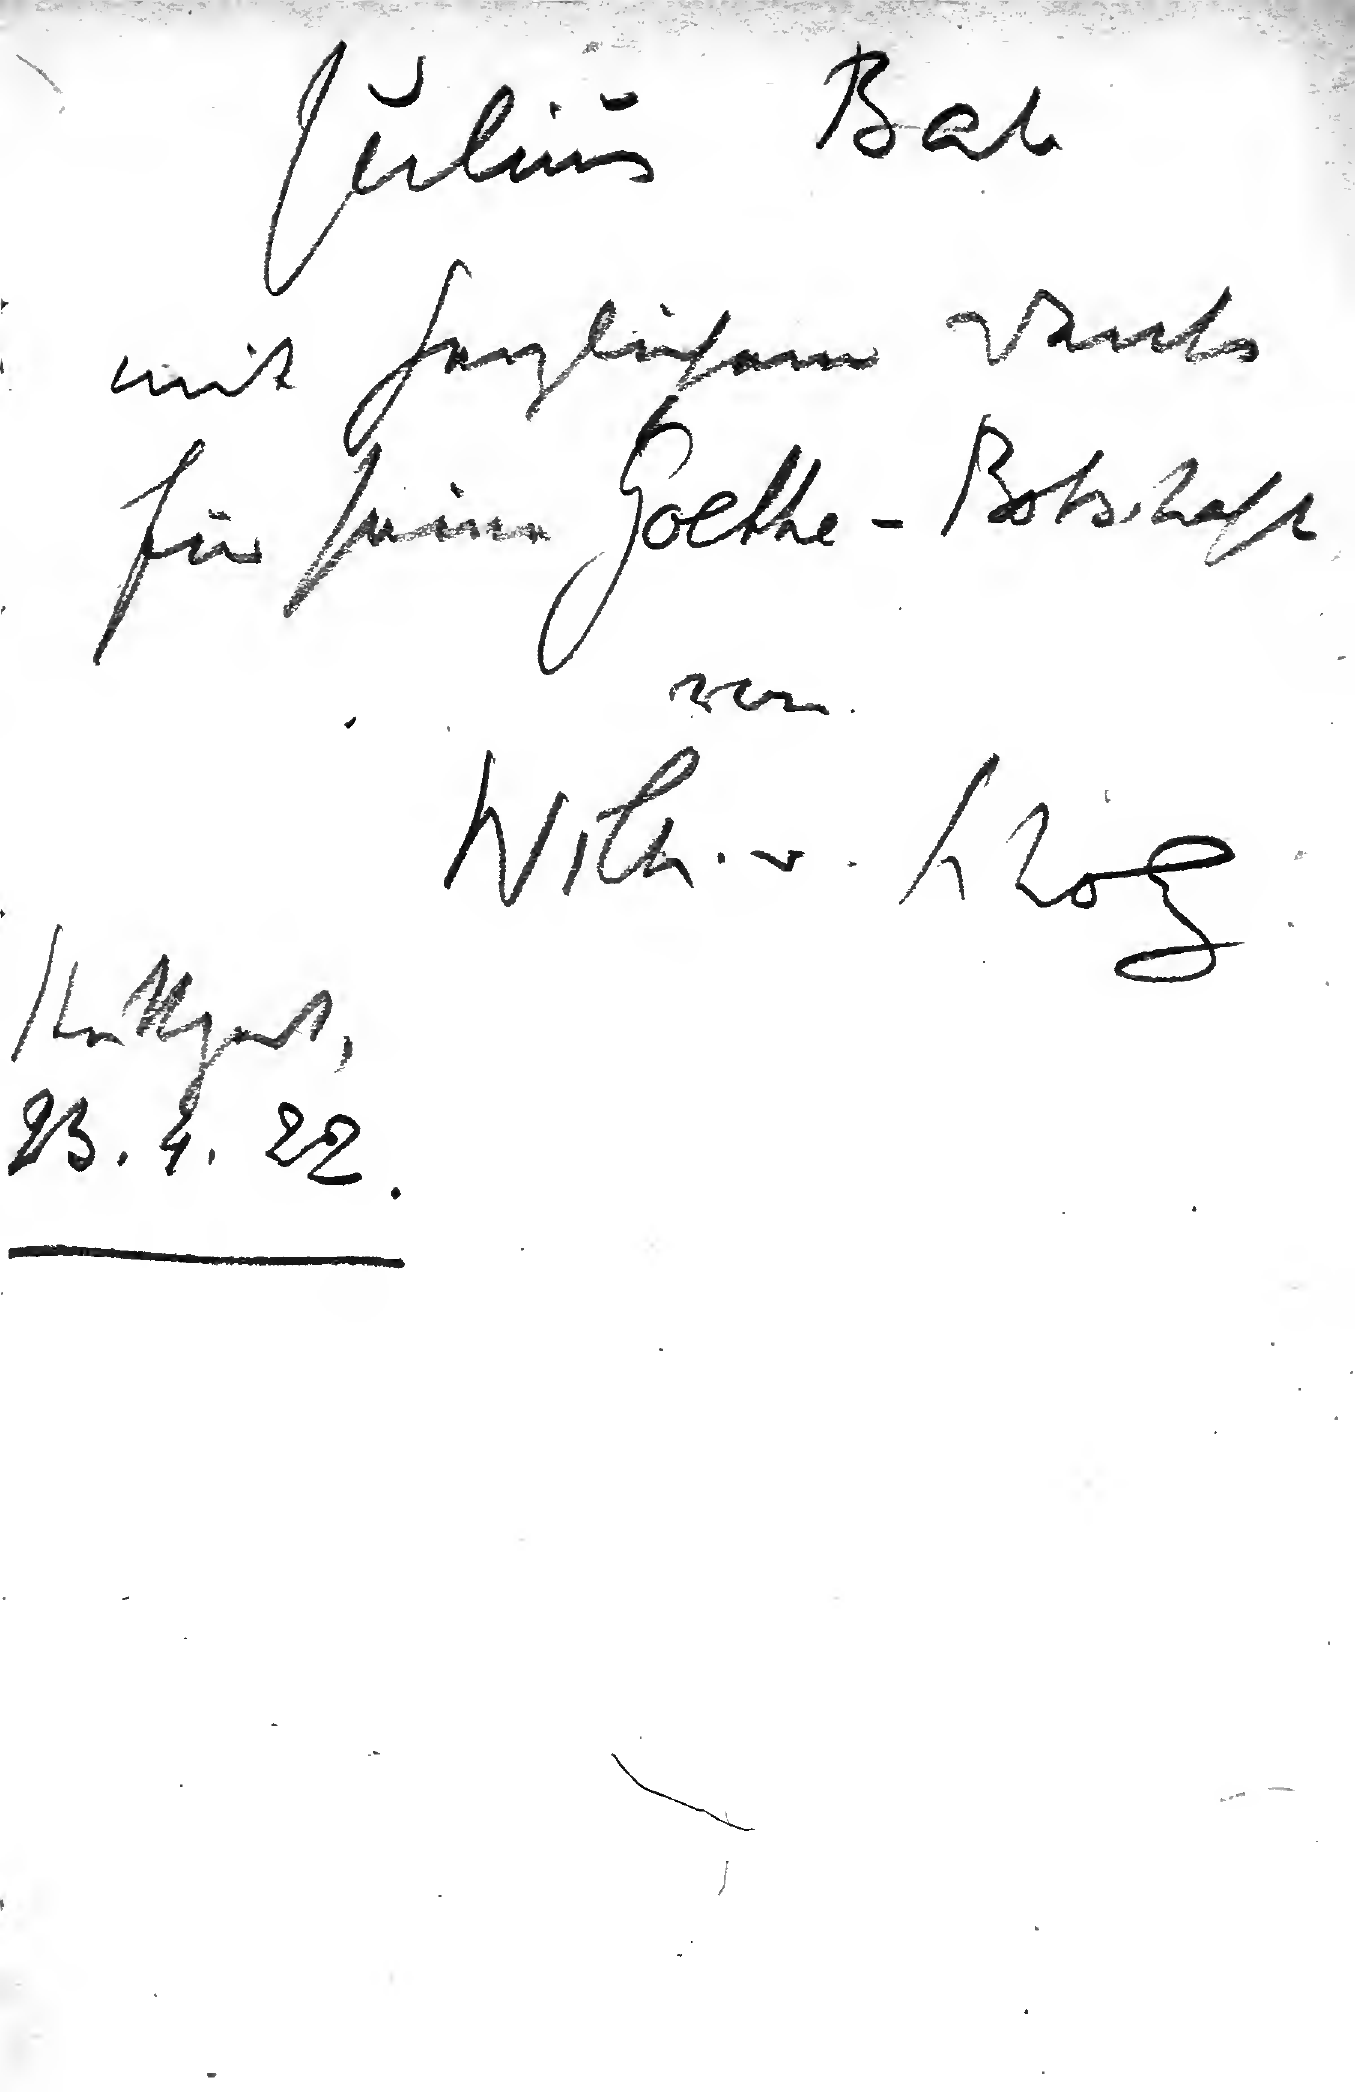 Julius Bab
mit herzlichem Dank
für seine Goethe-Botschaft
von
Wilh. v. Scholz
Stuttgart,
23. 4. 22.